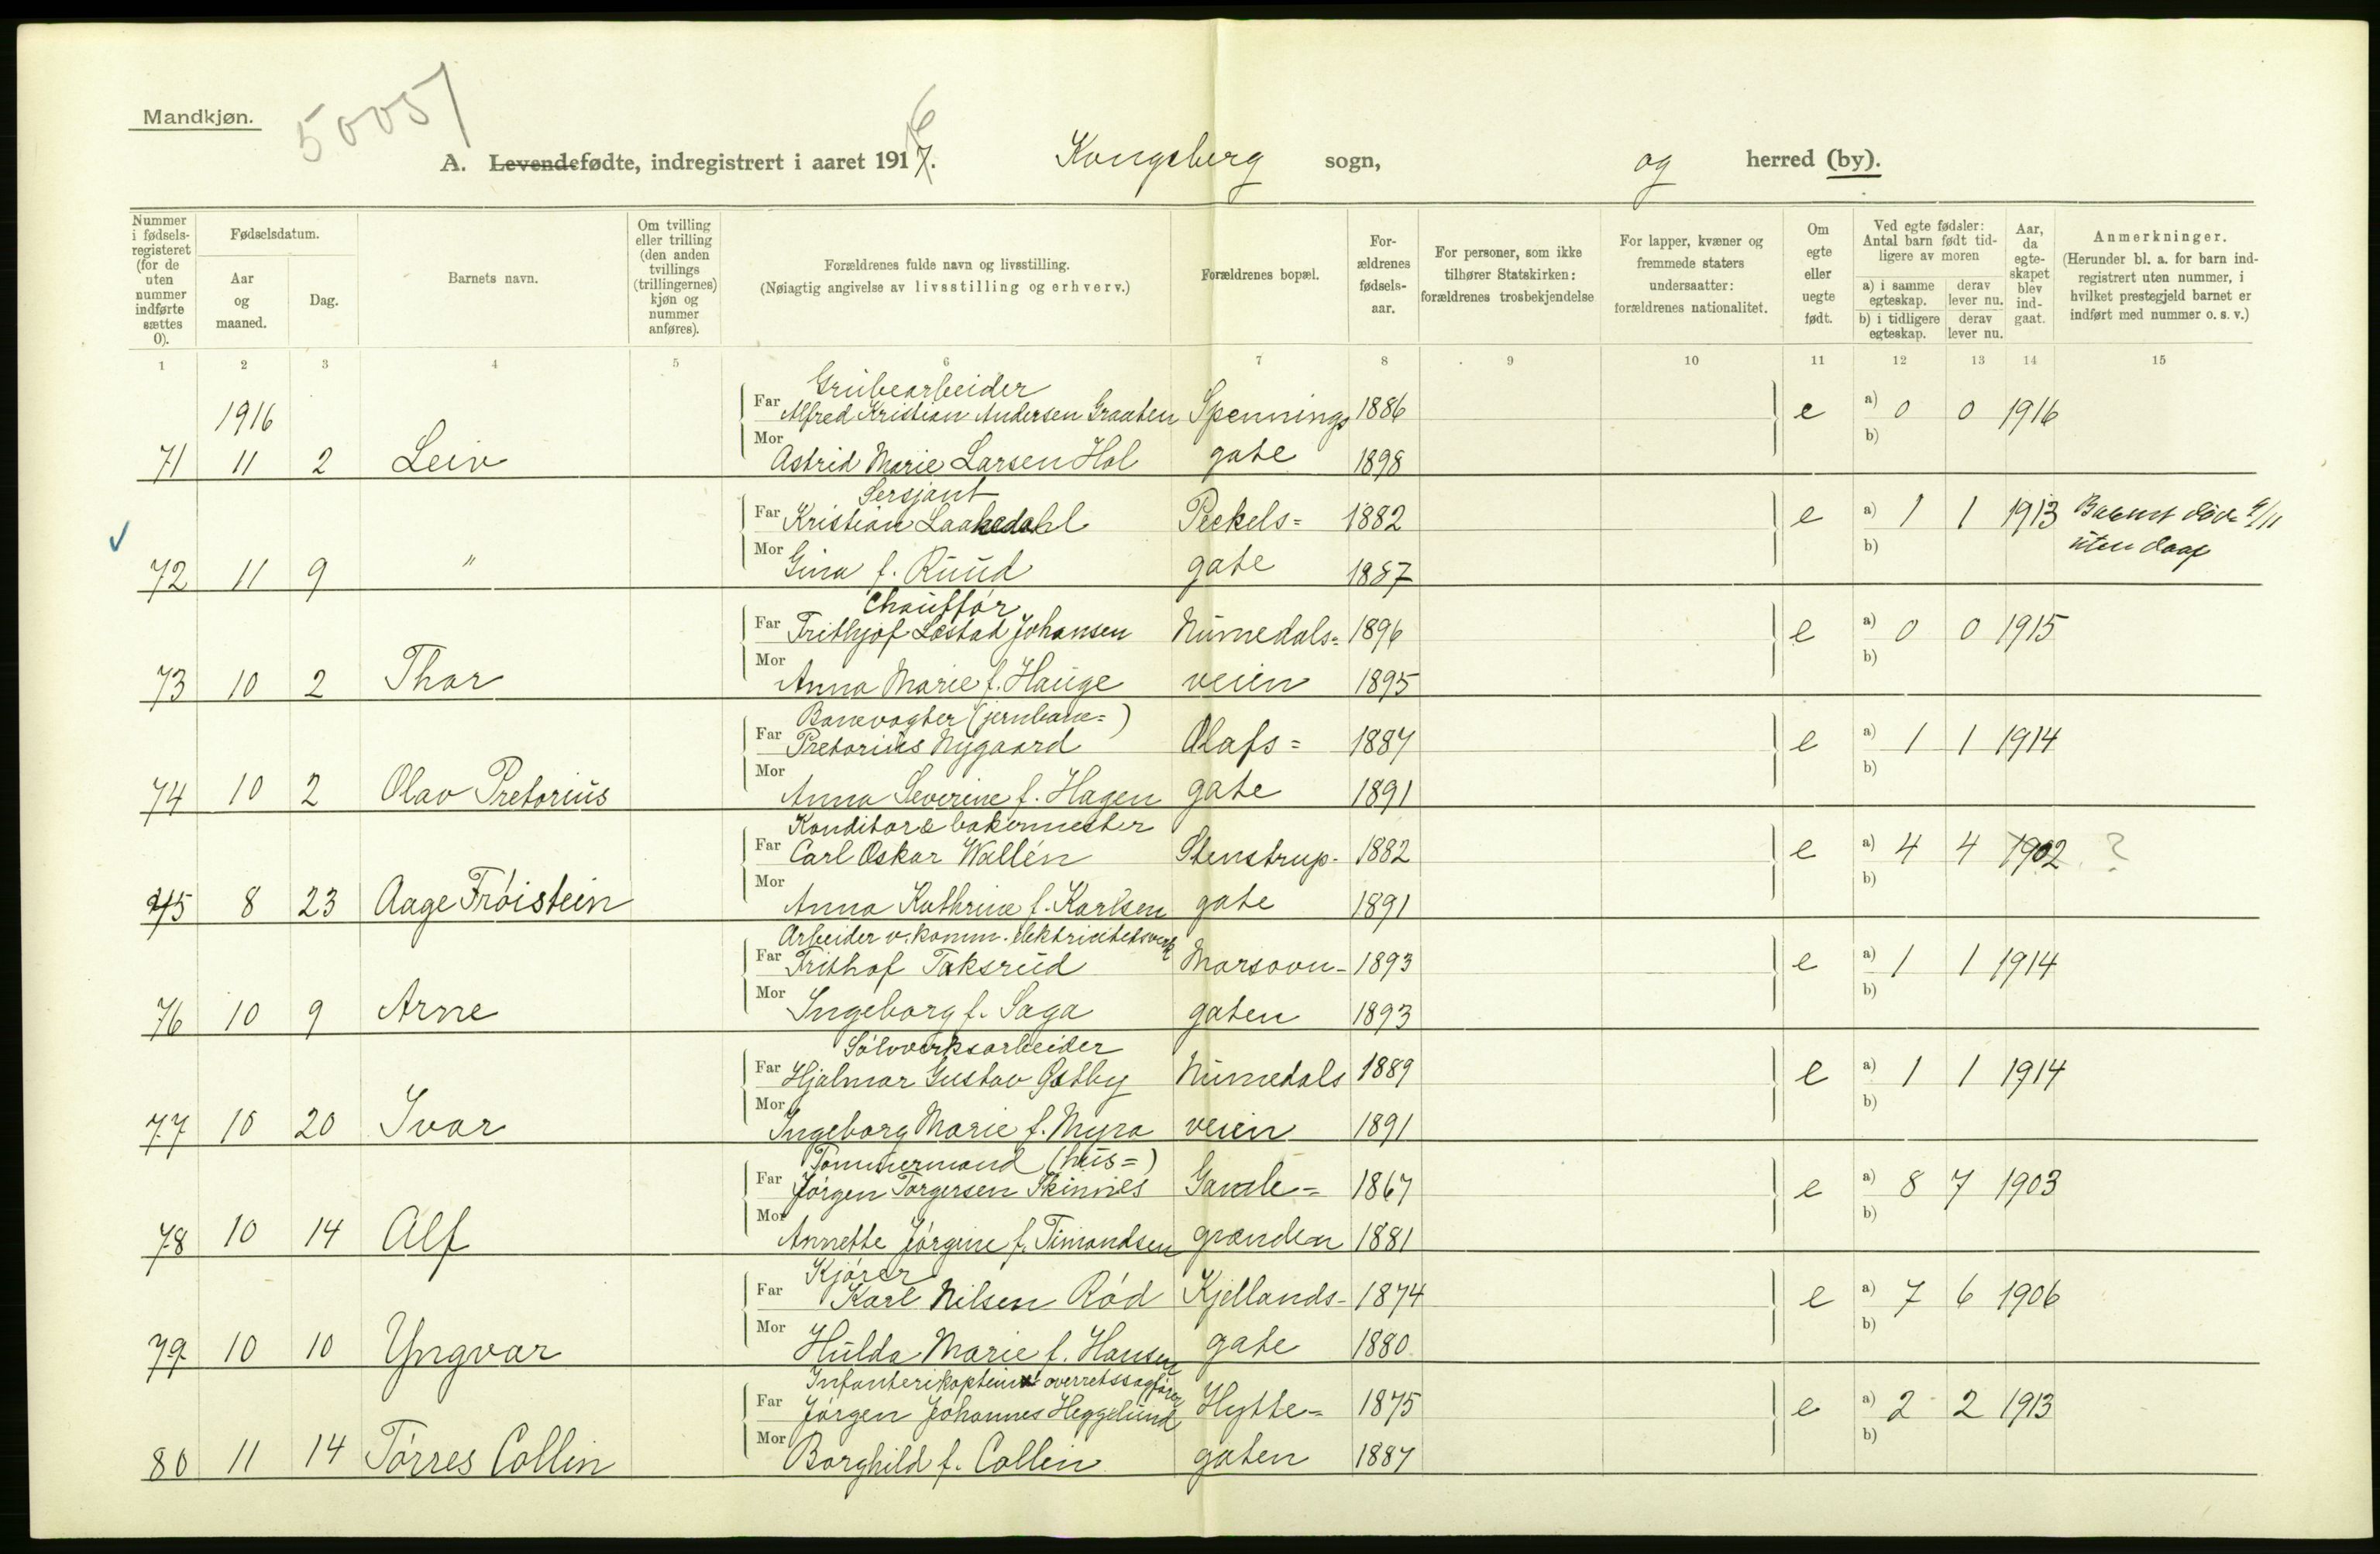 Mandkjøn.
50057
A. Levendefødte, indregistrert i aaret 1917. 6 Kongsberg sogn, og herred (by).
Nummer i fødsels-registeret (for de uten nummer indførte sættes 0).
Fødselsdatum.
Aar og maaned.
Dag.
Barnets navn.
Om tvilling eller trilling (den anden tvillings (trillingernes) kjøn og nummer anføres).
Forældrenes fulde navn og livsstilling.
(Nøiagtig angivelse av livsstilling og erhverv.)
Forældrenes bopæl.
For-ældrenes fødsels-aar.
For personer, som ikke tilhører Statskirken: forældrenes trosbekjendelse
For lapper, kvæner og fremmede staters undersaatter: forældrenes nationalitet.
Om egte eller uegte født.
Ved egte fødsler: Antal barn født tid-ligere av moren
a) i samme egteskap.
derav lever nu.
b) i tidligere egteskap.
derav lever nu.
Aar, da egte-skapet blev ind-gaat.
Anmerkninger.
(Herunder bl. a. for barn ind-registrert uten nummer, i hvilket prestegjeld barnet er indført med nummer o. s. v.)
1 2 3 4 5 6 7 8 9 10 11 12 13 14 15
Grubearbeider
1916 Far Alfred Kristian Andersen Graaten Spennings 1886 e a) 0 0 1916
b)
71 11 2 Leiv Mor Astrid Marie Larsen Hol gate 1898
Sersjant
Far Kristian Laahedahl Peckels= 1882 e a) 1 1 1913 Barnet døde 9/11
b) uten daap
72 11 9 " Mor Gina f. Ruud gate 1887
Chauffør
Far Frithjof Løstad Johansen Numedals= 1896 e a) 0 0 1915
b)
73 10 2 Thor Mor Anna Marie f. Hauge veien 1895
Banevogter (jernbane=)
Far Pretorius Nygaard Olafs= 1887 e a) 1 1 1914
b)
74 10 2 Olav Pretorius Mor Anna Severine f. Hagen gate 1891
Konditor & bakermester
Far Carl Oskar Wallén Stenstrup- 1882 e a) 4 4 1902 ?
b)
75 8 23 Aage Frøistein Mor Anna Kathrine f. Karlsen gate 1891
Arbeider v. komm. elektricitetsverk
Far Frithof Taksrud 1893 e a) 1 1 1914
b)
76 10 9 Arne Mor Ingeborg f. Saga gaten 1893
Sølvverksarbeider
Far Hjalmar Gustav Østby Numedals 1889 e a) 1 1 1914
b)
77 10 20 Ivar Mor Ingeborg Marie f. Myra veien 1891
Tømmermand (hus=)
Far Jørgen Torgersen Skinnes Gamle= 1867 e a) 8 7 1903
b)
78 10 14 Alf Mor Annette Jørgine f. Timandsen grænden 1881
Kjører
Far Karl Nilsen Rød Kjellands- 1874 e a) 7 6 1906
b)
79 10 10 Yngvar Mor Hulda Marie f. Hansen gate 1880
Infanterikaptein overretssagfører
Far Jørgen Johannes Heggelund Hytte= 1875 e a) 2 2 1913
b)
80 11 14 Tørres Collin Mor Borghild f. Collin gaten 1887